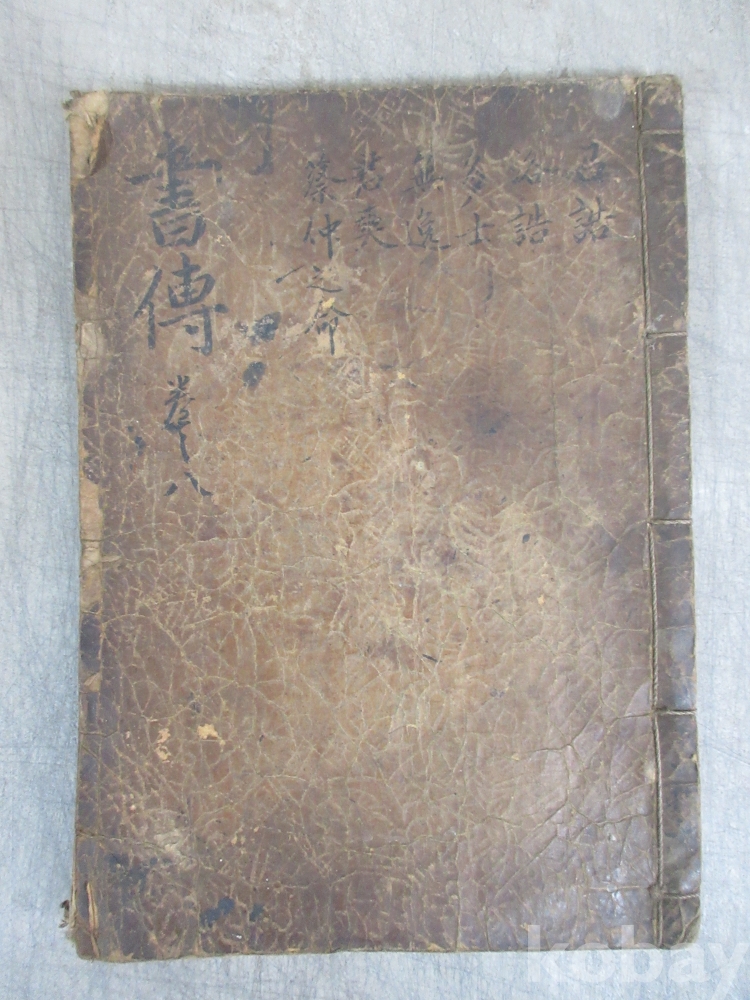 召誥
洛誥
多士
無逸
君奭
蔡仲之命
書傳
卷之八
kobay